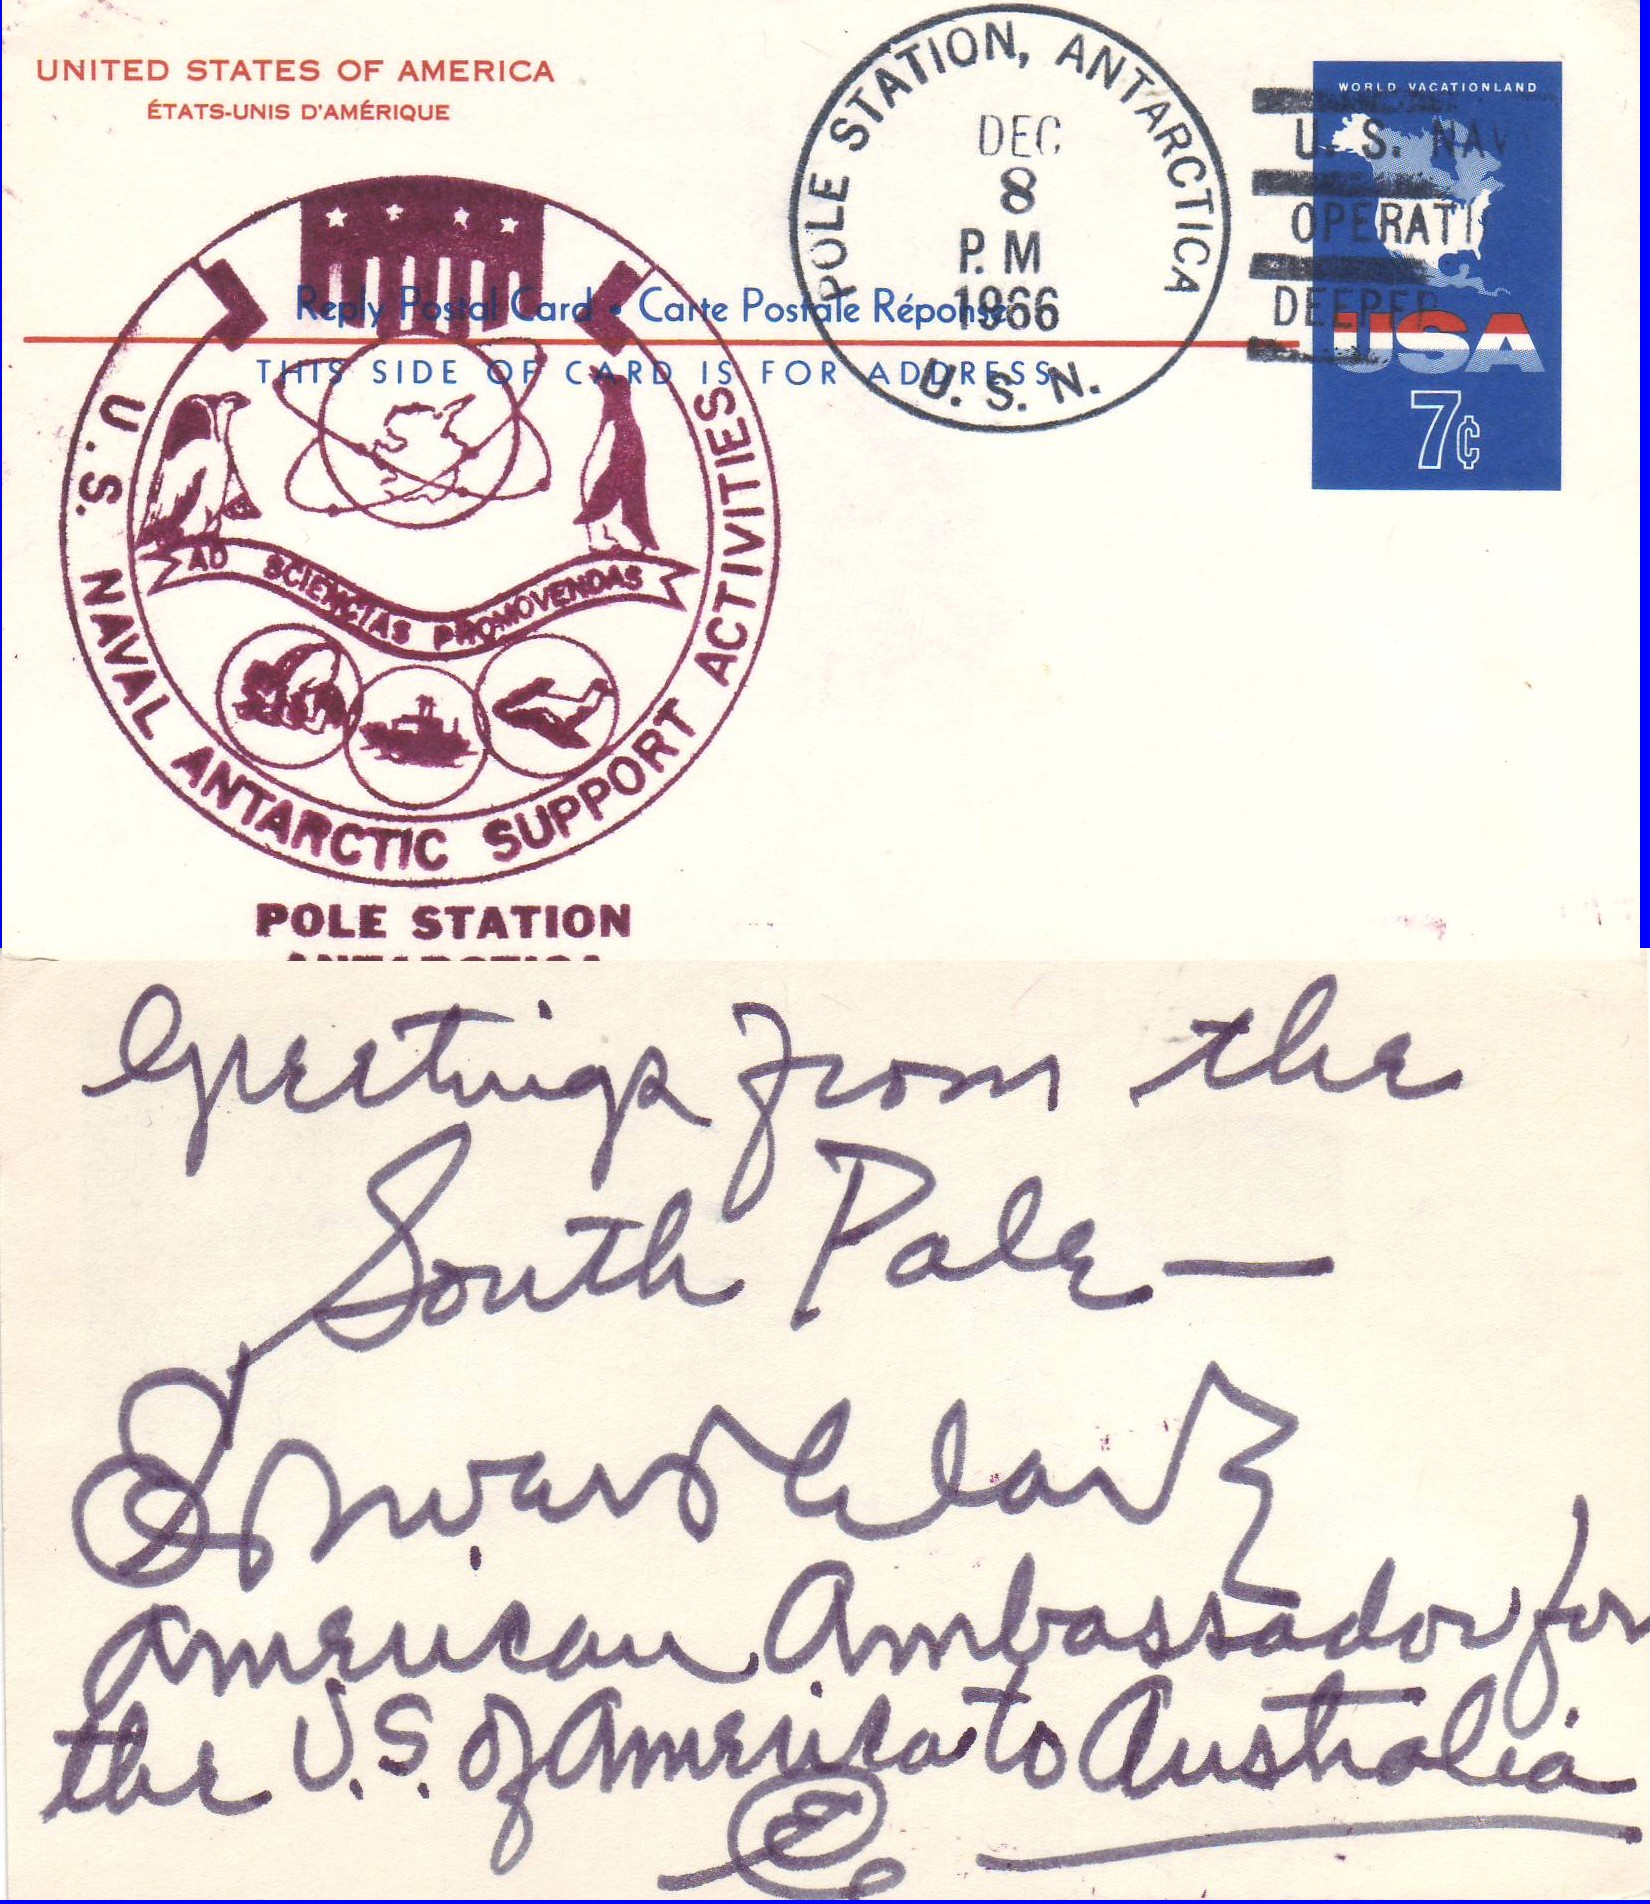 UNITED STATES OF AMERICA
ÉTATS-UNIS D'AMÉRIQUE
POLE STATION, ANTARCTICA
DEC
8
P.M
1966
U. S. N.
WORLD VACATIONLAND
U. S. NAV
OPERATI
DEEPFR
USA
7¢
Reply Postal Card • Carte Postale Réponse
THIS SIDE OF CARD IS FOR ADDRESS
U.S. NAVAL ANTARCTIC SUPPORT ACTIVITIES
AD SCIENCIAS PROMOVENDAS
POLE STATION
ANTARCTICA
Greetings from the
South Pole —
Edward Clark
American Ambassador for
the U.S. of America to Australia